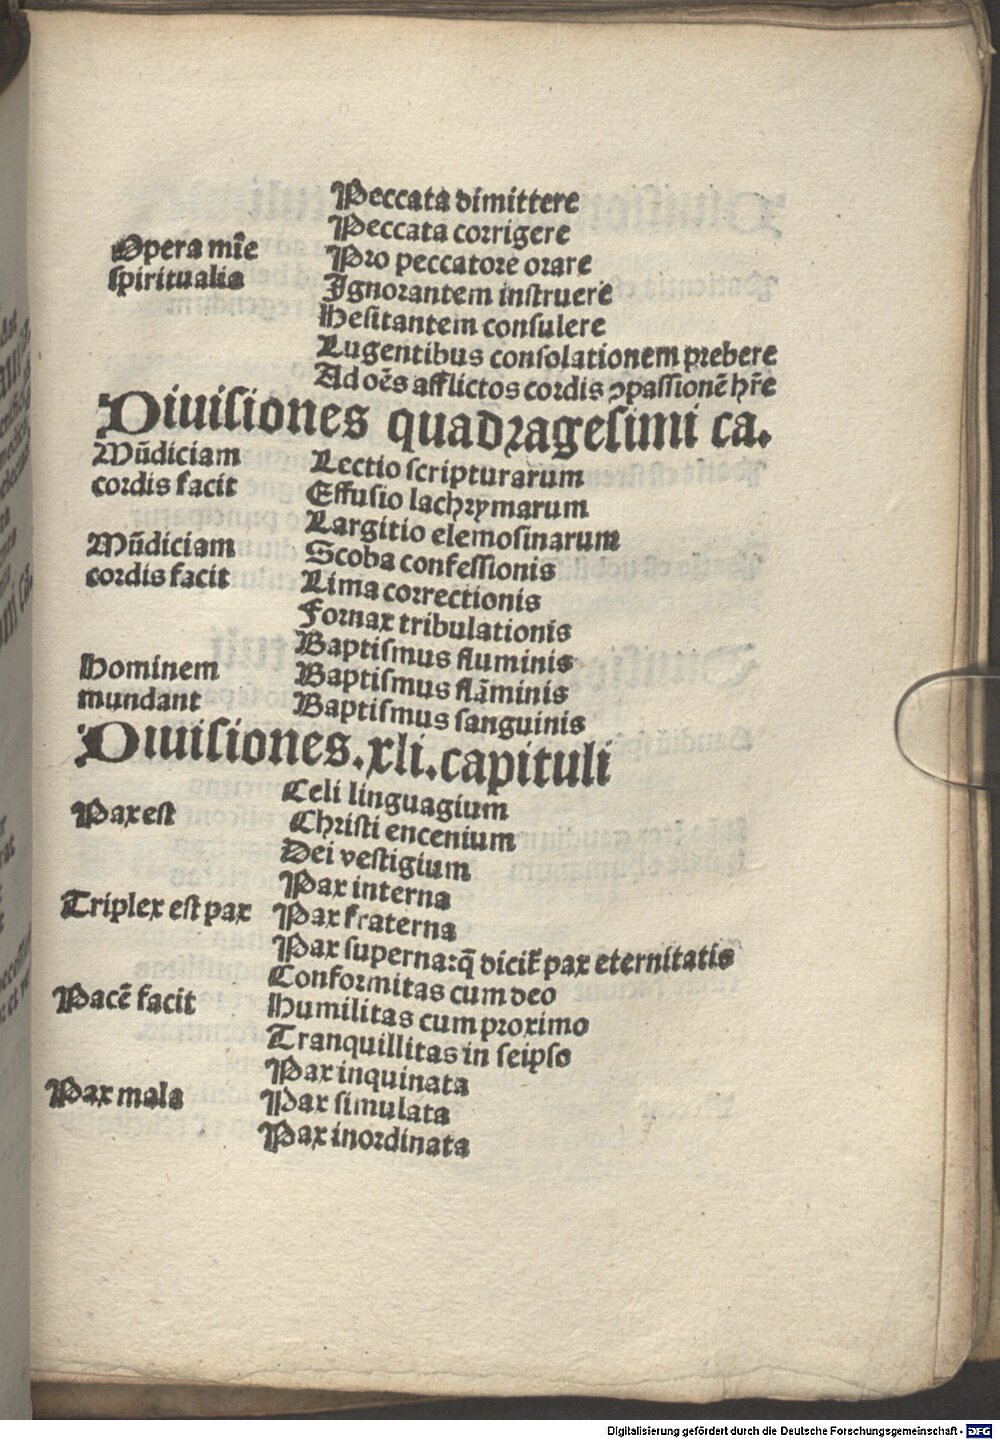 Peccata dimittere
Peccata corrigere
Opera mīe
Pro peccatore orare
spiritualia
Ignorantem instruere
Hesitantem consulere
Lugentibus consolationem prebere
Ad oēs afflictos cordis ꝯpassionē hr̄e
Diuisiones quadragesimi ca.
Mūdiciam
Lectio scripturarum
cordis facit
Effusio lachrymarum
Largitio elemosinarum
Mūdiciam
Scoba confessionis
cordis facit
Lima correctionis
Fornax tribulationis
Baptismus fluminis
Hominem
Baptismus flāminis
mundant
Baptismus sanguinis
Diuisiones.xli.capituli
Celi linguagium
Pax est
Christi encenium
Dei vestigium
Pax interna
Triplex est pax
Pax fraterna
Pax superna: q̄ dicit̄ pax eternitatis
Conformitas cum deo
Pacē facit
Humilitas cum proximo
Tranquillitas in seipso
Pax inquinata
Pax mala
Pax simulata
Pax inordinata
Digitalisierung gefördert durch die Deutsche Forschungsgemeinschaft - DFG